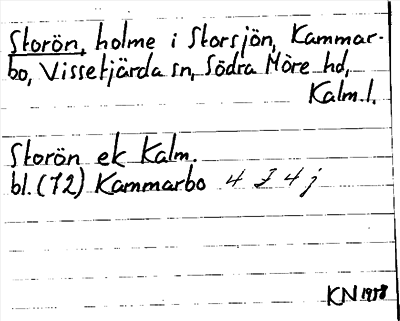 Storön, holme i Storsjön, Kammar-
bo, Vissefjärda sn, Södra Möre hd,
Kalm.l.
Storön ek Kalm.
bl. (72) Kammarbo 4 I 4 j
KN 1958